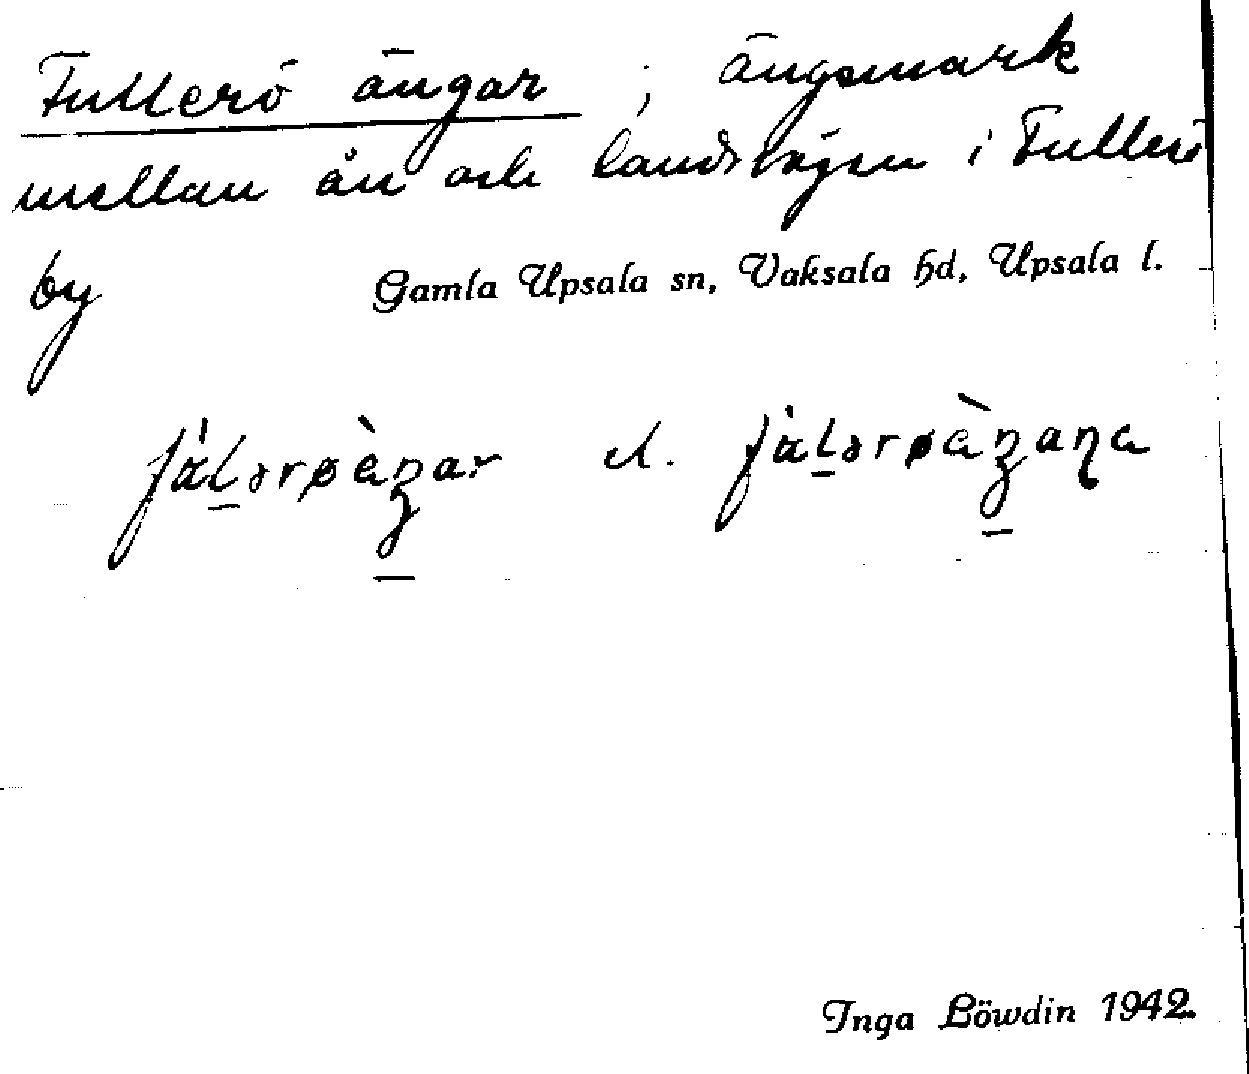 Fullerö ängar ; ängsmark
mellan ån och landsvägen i Fullerö
by
Gamla Upsala sn, Vaksala hd, Upsala l.
el.
Inga Löwdin 1942.